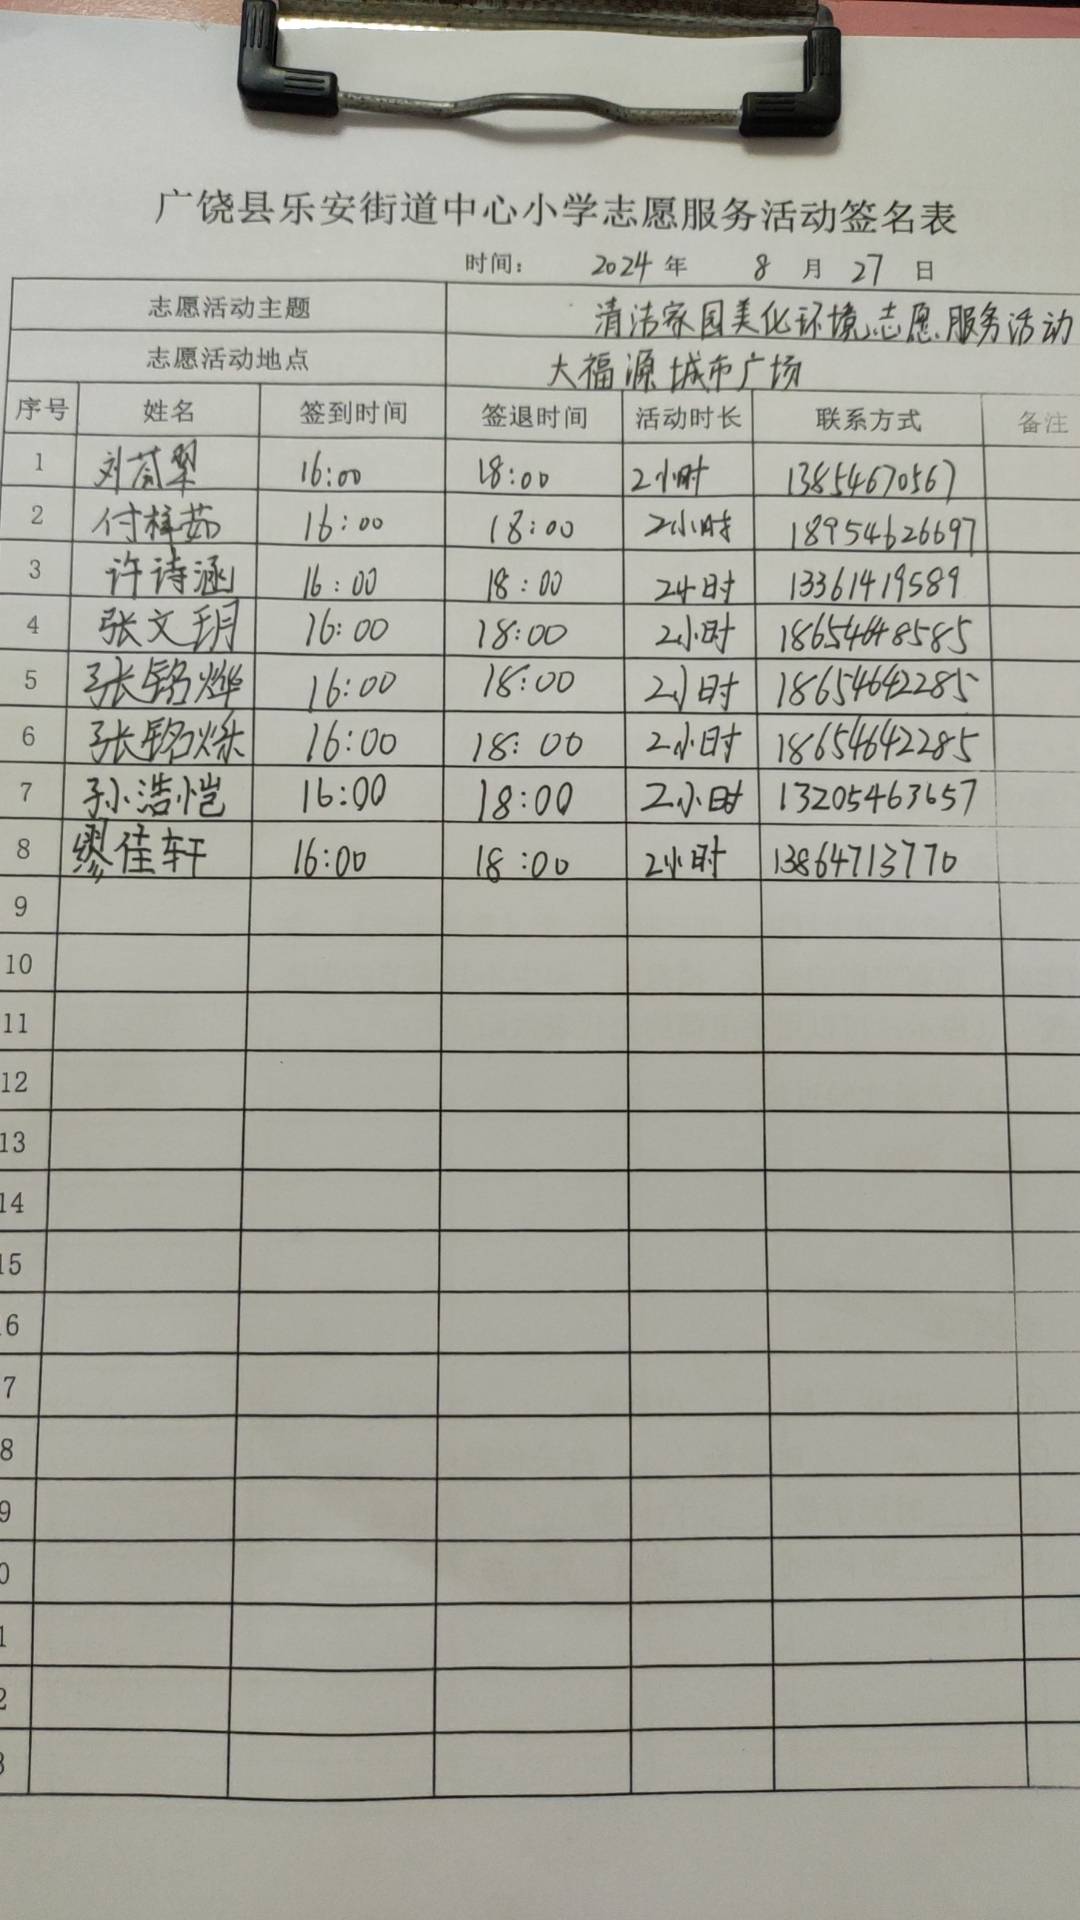 广饶县乐安街道中心小学志愿服务活动签名表
时间： 2024 年 8 月 27 日
志愿活动主题 清洁家园美化环境志愿服务活动
志愿活动地点 大福源城市广场
序号 姓名 签到时间 签退时间 活动时长 联系方式 备注
1 刘荷翠 16:00 18:00 2小时 13854670567
2 付梓茹 16:00 18:00 2小时 18954626697
3 许诗涵 16:00 18:00 2小时 13361419589
4 张文玥 16:00 18:00 2小时 18654648585
5 张铭烨 16:00 18:00 2小时 18654642285
6 张铭烁 16:00 18:00 2小时 18654642285
7 孙浩恺 16:00 18:00 2小时 13205463657
8 缪佳轩 16:00 18:00 2小时 13864713770
9
10
11
12
13
14
15
6
7
8
9
0
1
2
3